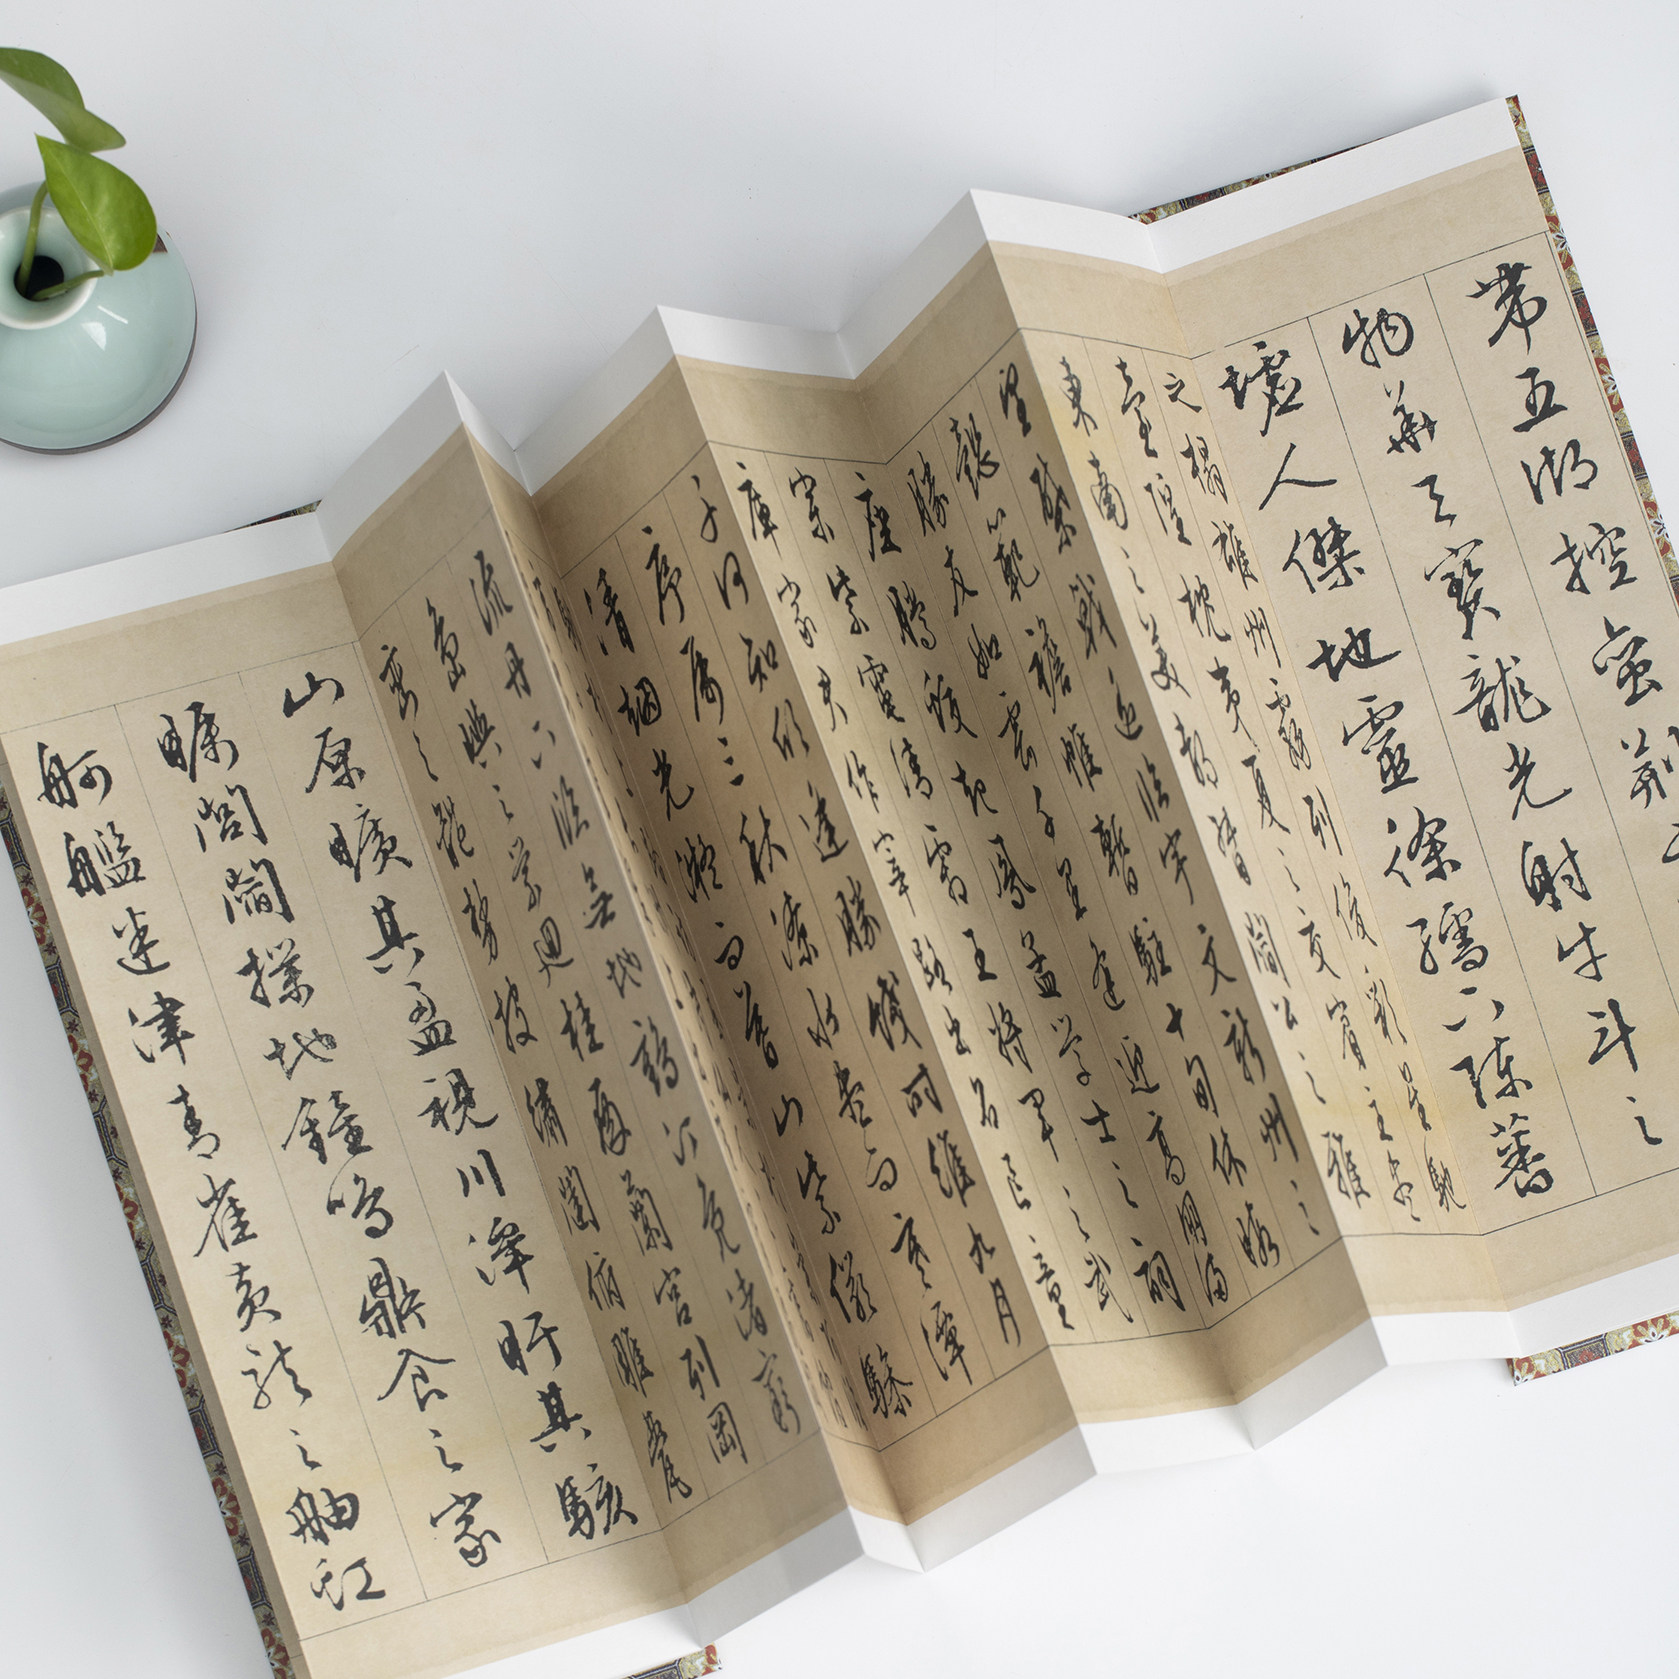 帶五湖控蛮荆
物華天寶龍光射牛斗之
墟人傑地靈徐孺下陳蕃
之榻雄州霧列俊彩星馳
臺隍枕夷夏之交賓主盡
東南之美都督閻公之雅
望棨戟遥臨宇文新州之
懿範襜帷暫駐十旬休暇
勝友如雲千里逢迎高朋滿
座騰蛟起鳳孟學士之詞
宗紫電清霜王將軍之武
庫家君作宰路出名區童
子何知躬逢勝餞時維九月
序屬三秋潦水盡而寒潭
清烟光凝而暮山紫儼驂
流丹下臨無地鶴汀鳧渚窮
島嶼之縈迴桂殿蘭宮列岡
巒之體勢披繡闥俯雕甍
山原曠其盈視川澤盱其駭
矚閭閻撲地鐘鳴鼎食之家
舸艦迷津青雀黄龍之舳虹